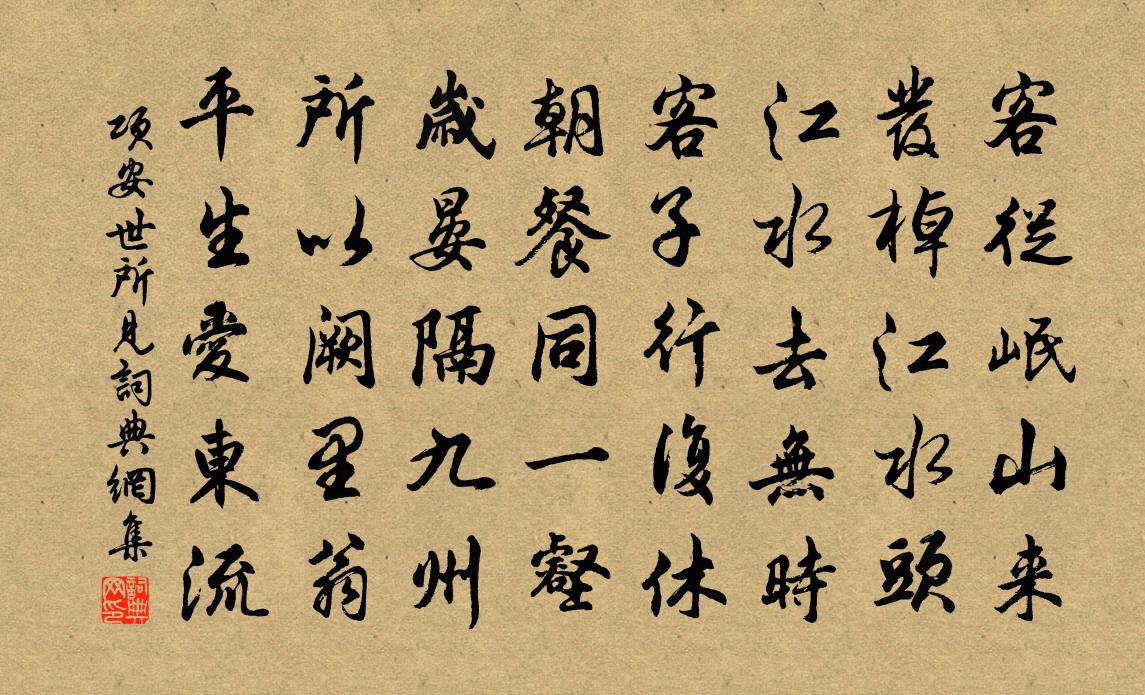 客從岷山来
發棹江水頭
江水去無時
客子行復休
朝餐同一壑
歲晏隔九州
所以闕里翁
平生愛東流
項安世所見詞典網集
詞典网印